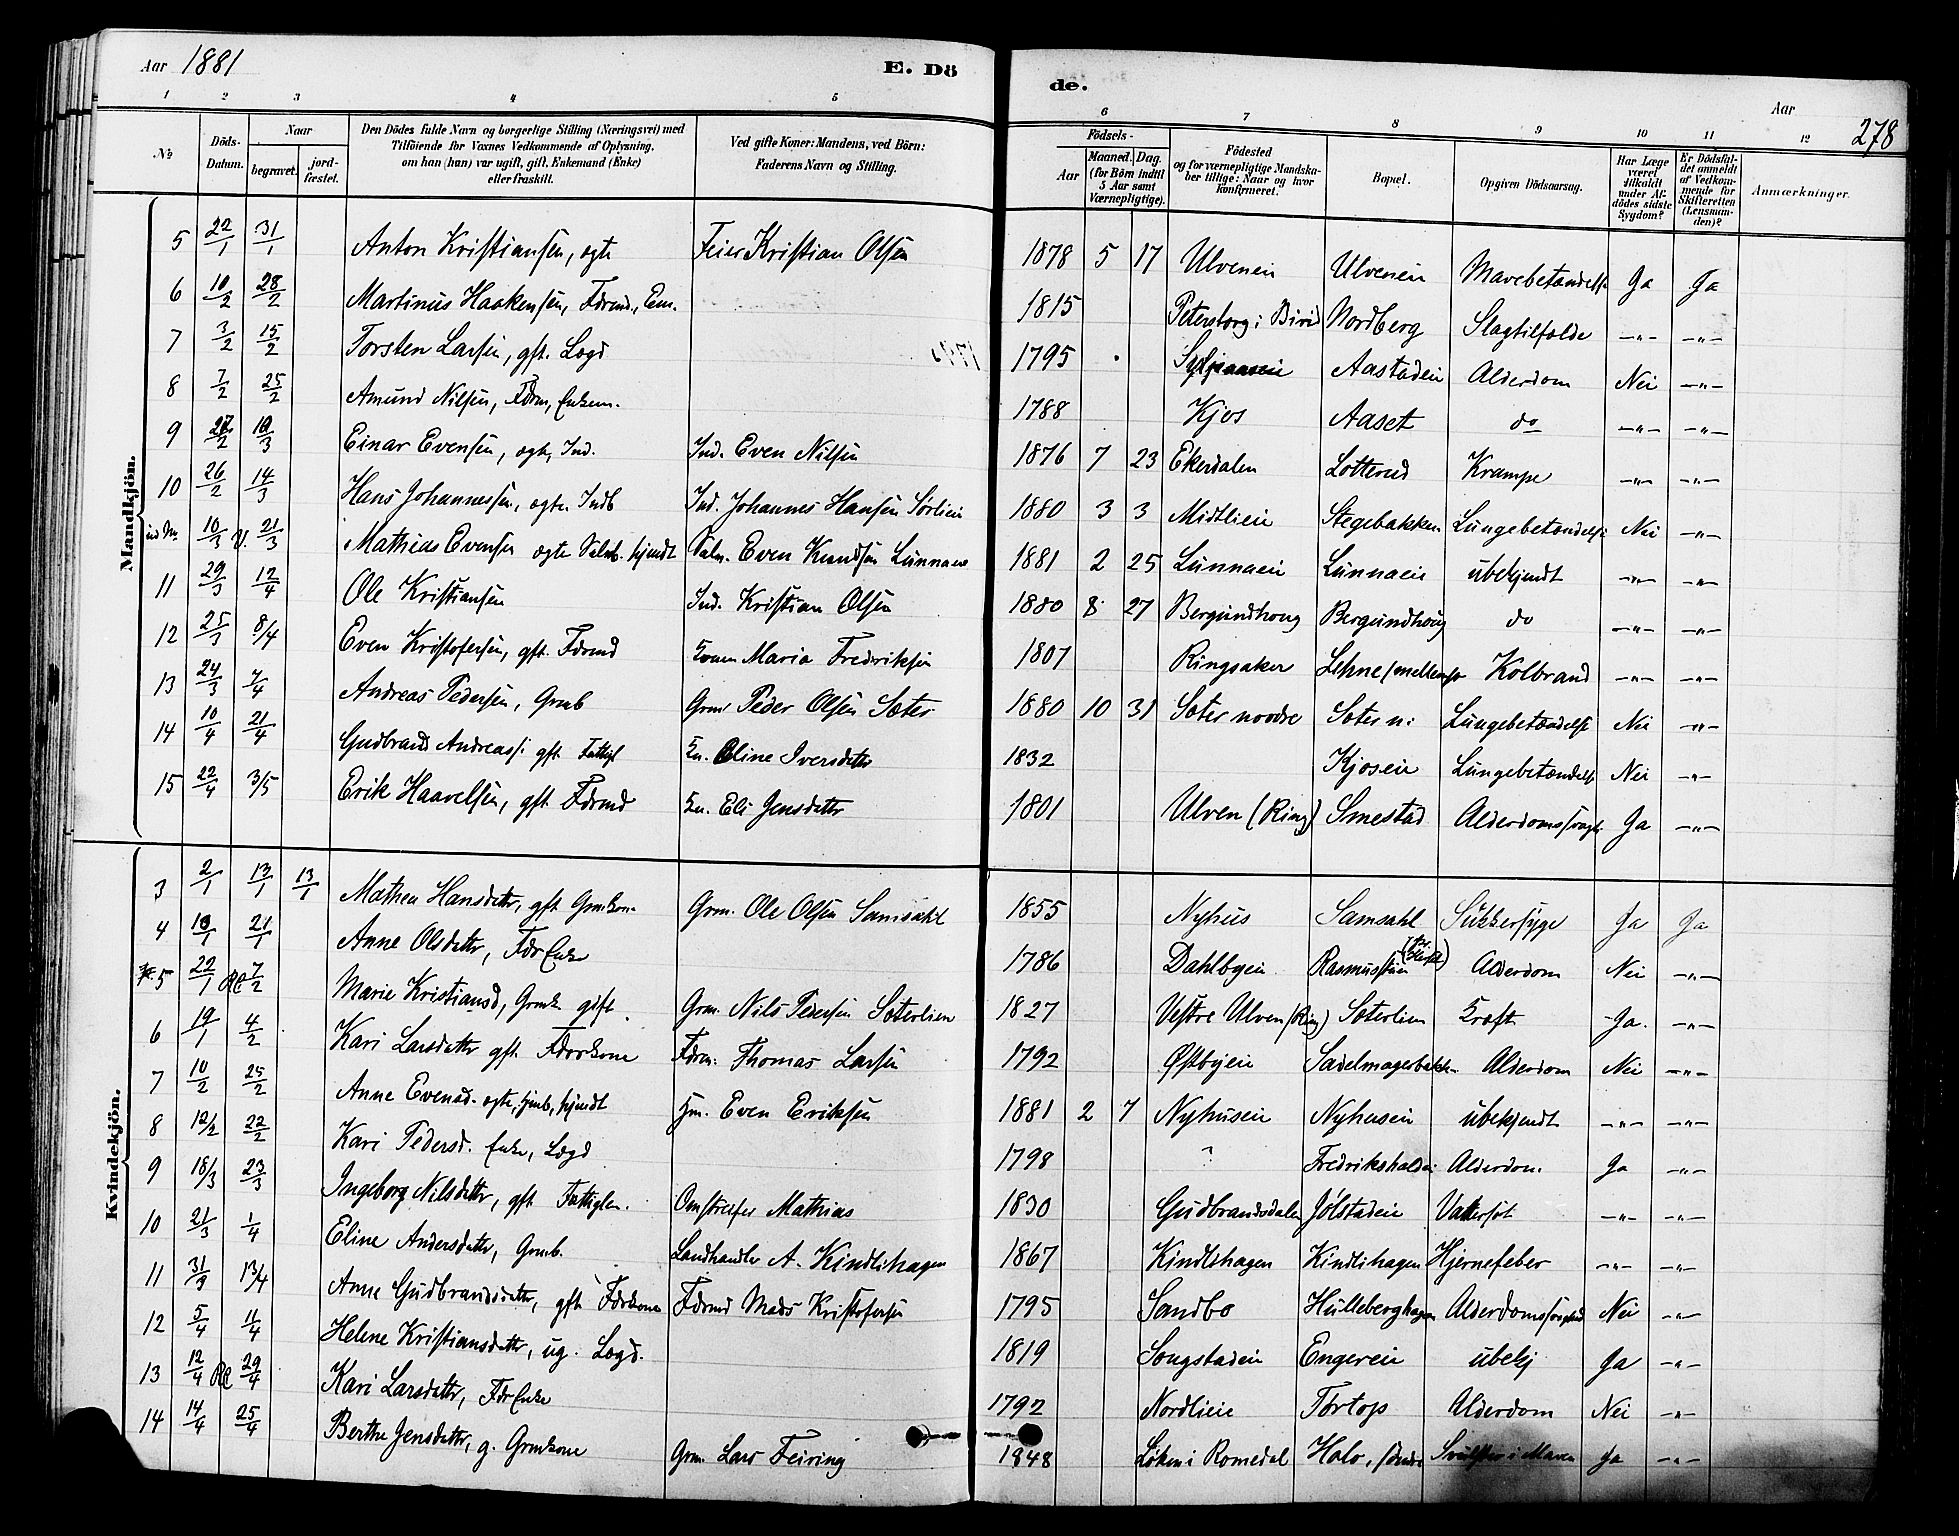 Aar 1881 E. Dö de. Aar 278
1 2 3 4 5 6 7 8 9 10 11 12
No Döds-Datum. Naar begravet. jord-fæstet. Den Dödes fulde Navn og borgerlige Stilling (Næringsvei) med Tilföiende for Voxnes Vedkommende af Oplysning, om han (hun) var ugift, gift, Enkemand (Enke) eller fraskilt. Ved gifte Koner: Mandens, ved Börn: Faderens Navn og Stilling. Födsels- Aar Maaned. Dag. (for Börn indtil 5 Aar samt Værnepligtige). Födested og for værnepligtige Mandskaber tillige: Naar og hvor konfirmeret. Bopæl. Opgiven Dödsaarsag. Har Læge været tilkaldt under Afdödes sidste Sygdom? Er Dödsfaldet anmeldt af Vedkommende for Skifteretten (Lensmanden)? Anmærkninger.
Mandkjön.
5 22/1 31/1 Anton Kristiansen, ægte Feier Kristian Olsen 1878 5 17 Ulveneie Ulveneie Mavebetændelse Ja Ja
6 10/2 28/2 Martinus Haakensen, Fdrmd., Enm. 1815 Petersborg i Birid Nordberg Slagtilfælde —"— —"—
7 3/2 15/2 Torsten Larsen, gft. Lægd 1795 Aastadeie Alderdom Nei —"—
8 7/2 25/2 Amund Nilsen, Fdrm, Enkem. 1788 Kjos Aaset do —"— —"—
9 /2 /3 Einar Evensen, ægte, Ind. Ind. Even Nilsen 1876 7 23 Ekerdalen Lotterud Krampe —"— —"—
10 26/2 14/3 Hans Johannessen, ægte, Indb Ind. Johannes Hansen Sørlien 1880 3 3 Midtlien Stegebakken Lungebetændelse Nei —"—
ud No 10/3 V. 21/3 Mathias Evensen ægte hjemdt Even Knudsen Lunnaeie 1881 2 25 Lunnaeie Lunnaeie ubekjendt —"— —"—
11 29/3 12/4 Ole Kristiansen Ind. Kristian Olsen 1880 8 27 Bergundhoug Bergundhoug do —"— —"—
12 25/3 8/4 Even Kristofersen, gft. Fdrmd Konen Maria Fredriksen 1807 Ringsaker Lehne Kolbrand —"— —"—
13 24/3 7/4 Andreas Pedersen, Grmb Grm Peder Olsen Sæter 1880 10 31 Sæter nordre Sæter n: Lungebetændelse Nei —"—
14 10/4 21/4 Gudbrand Andreass. gft. Fattigl Kn. Eline Iversdatter 1832 Kjoseie Lungebetændelse Nei —"—
15 22/4 3/5 Erik Haavelsen, gft. Fdrmd Kn. Eli Jensdatter 1801 Ulven (Ring) Smestad Alderdomssvagh. Ja —"—
Kvindekjön.
3 2/1 13/1 13/1 Mathea Hansdatter, gft Grmkone Grm. Ole Olsen Samsahl 1855 Nyhus Samsahl Sukkersyge Ja Ja
4 10/1 21/1 Anne Olsdatter, Fdr Enke 1786 Dahlbyeie Rasmusstuen Alderdom Nei —"—
5 22/1 7/2 Marie Kristiansd, Grmk gift Grm. Nils Pedersen Sæterlien 1827 Vestre Ulven (Ring) Sæterlien Kræft Ja. —"—
6 19/1 4/2 Kari Larsdatter gft. Fdrkone Fdrm: Thomas Larsen 1792 Østbyeie Sadelmagerbakk. Alderdom Nei —"—
7 10/2 25/2 Anne Evensd. ægte, hjmb, hjemdt Hjm. Even Eriksen 1881 2 7 Nyhuseie Nyhuseie ubekjendt —"— —"—
8 12/2 22/2 Kari Pedersd. Enke, Lægd 1798 " Fredrikshalden Alderdom Ja —"—
9 18/3 23/3 Ingeborg Nilsdatter, gft. Fattiglem. Omstreifer Mathias 1830 Gudbrandsdalen Jølstadeie Vattersot —"— —"—
10 21/3 1/4 Eline Andersdatter, Grmb. Landhandler A. Kindlihagen 1867 Kindlihagen Kindlihagen Hjernefeber —"— —"—
11 31/3 13/4 Anne Gudbrandsdatter, gft Fdrkone Fdrmd Mads Kristofersen 1795 Sandbo Hulleberghagen Alderdomssvaghed Nei —"—
12 5/4 11/4 Helene Kristiansdatter, ug. Lægd. 1819 Songstadeie Engereie ubekj Ja —"—
13 12/4 29/4 Kari Larsdatter, Fdr Enke 1792 Nordlieie Tørtop Alderdom Nei —"—
14 14/4 25/4 Berthe Jensdatter, g. Grmkone Grm. Lars Feiring 1848 Løken i Romedal Halo, søndre Svulster i Maven Ja —"—